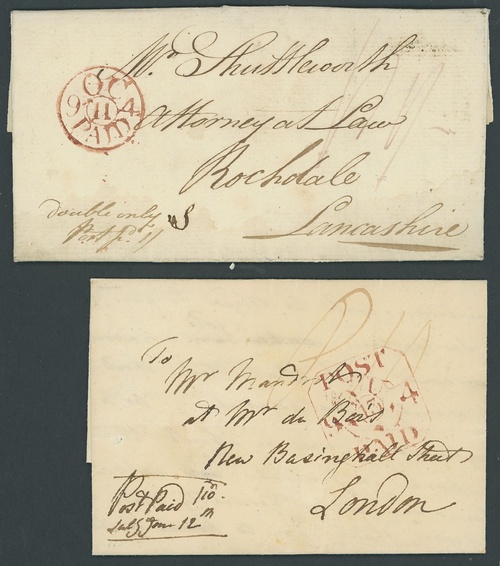 Mr. Shuttleworth
Attorney at Law
Rochdale
Lancashire
OC
9 11 4
PAID
double only
Post pd. 1/
To
Mr
at Mr du Bois
New Basinghall Street
London
POST
94
PAID
Post Paid
12